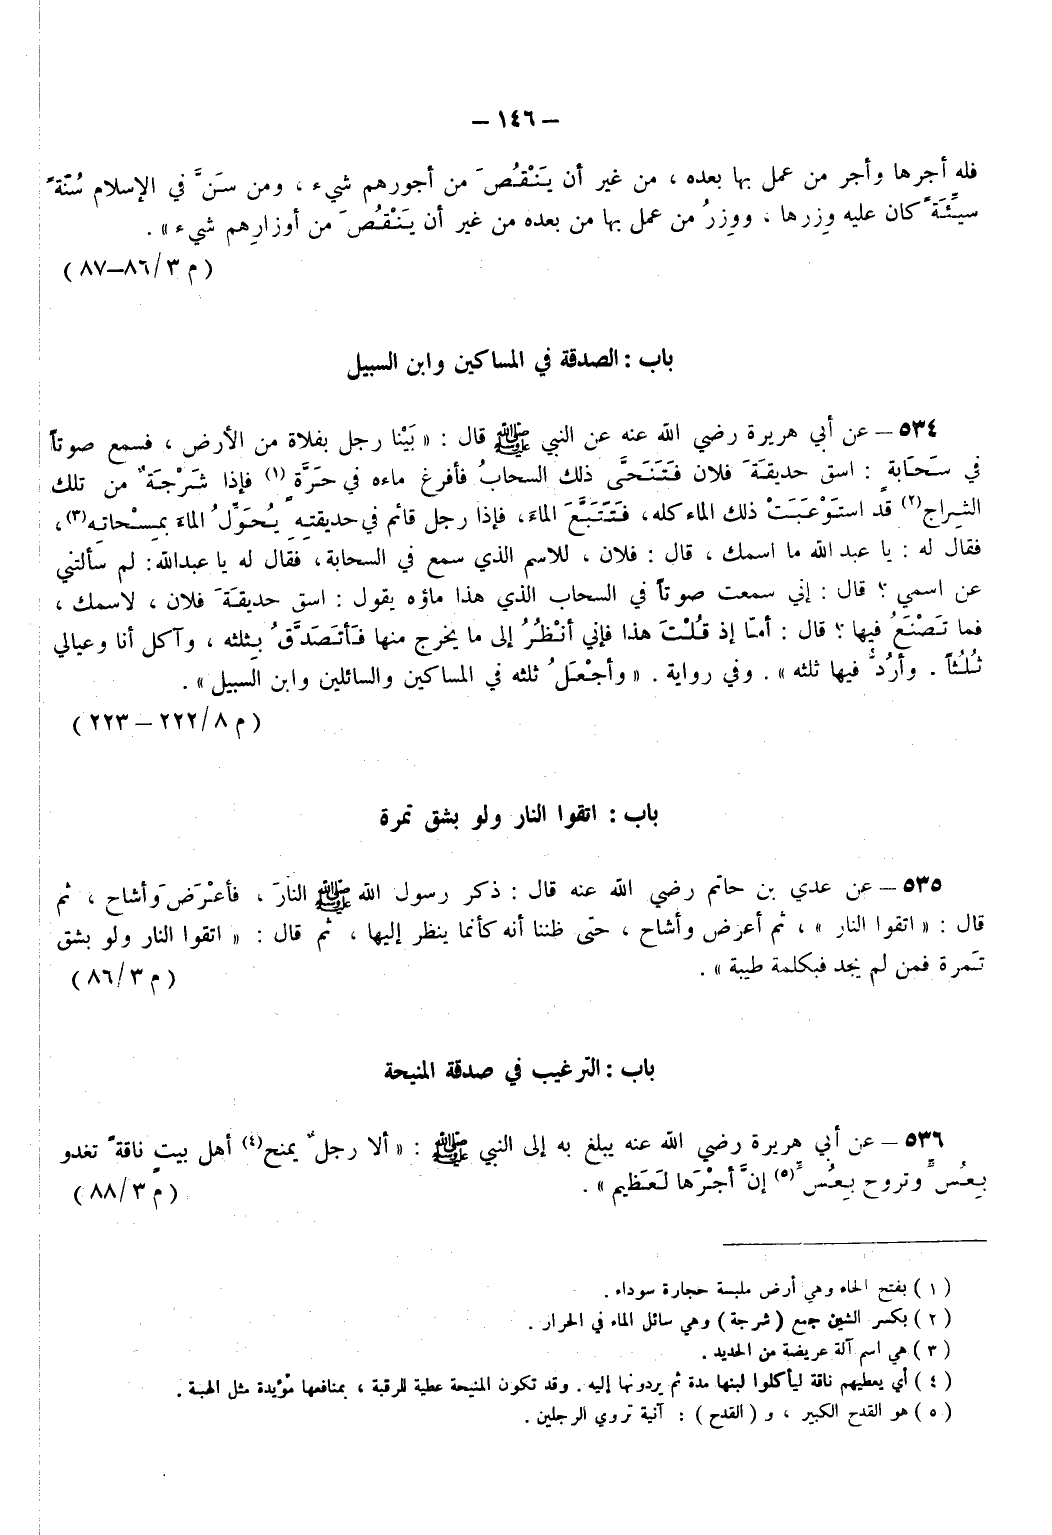 – ١٤٦ –
فله أجرها وأجر من عمل بها بعده ، من غير أن يَنْقُصَ من أجورهم شيء ، ومن سَنَّ في الإسلام سُنّةً
سيِّئَةً كان عليه وِزرها ، ووِزرُ من عمل بها من بعده من غير أن يَنْقُصَ من أوزارِهم شيء » .
( م ٣/ ٨٦–٨٧ )
باب : الصدقة في المساكين وابن السبيل
٥٣٤ – عن أبي هريرة رضي الله عنه عن النبي ﷺ قال : « بَيْنا رجل بفلاة من الأرض ، فسمع صوتاً
في سَحَابةٍ : اسق حديقَةَ فلان فَتَنَحَّى ذلك السحابُ فأفرغ ماءه في حَرَّةٍ (١) فإذا شَرْجَةٌ من تلك
الشِراج(٢) قد استَوْعَبَتْ ذلك الماء كله ، فَتَتَبَّعَ الماءَ ، فإذا رجل قائم في حديقتِهِ يُحَوِّلُ الماءَ بمِسْحاتِه(٣) ،
فقال له : يا عبد الله ما اسمك ، قال : فلان ، للاسم الذي سمع في السحابة ، فقال له يا عبدالله : لم سألتني
عن اسمي ؟ قال : إني سمعت صوتاً في السحاب الذي هذا ماؤه يقول : اسق حديقَةَ فلان ، لاسمك ،
فما تَصْنَعُ فيها ؟ قال : أمّا إذ قُلْتَ هذا فإني أنْظُرُ إلى ما يخرج منها فَأتَصَدَّقُ بِثلثه ، وآكل أنا وعيالي
ثُلُثاً . وأرُدُّ فيها ثلثه » . وفي رواية . « وأجْعَلُ ثلثه في المساكين والسائلين وابن السبيل » .
( م ٨/ ٢٢٢ – ٢٢٣ )
باب : اتقوا النار ولو بشق تمرة
٥٣٥ – عن عدي بن حاتم رضي الله عنه قال : ذكر رسول الله ﷺ النارَ ، فأعْرَضَ وَأشاح ، ثم
قال : « اتقوا النار » ، ثم أعرض وأشاح ، حتّى ظننا أنه كأنما ينظر إليها ، ثم قال : « اتقوا النار ولو بشق
تَمرة فمن لم يجد فبكلمة طيبة » .
( م ٣/ ٨٦ )
باب : التّرغيب في صدقة المنيحة
٥٣٦ – عن أبي هريرة رضي الله عنه يبلغ به إلى النبي ﷺ : « ألا رجلٌ يمنح(٤) أهل بيتٍ ناقةً تغدو
بِعُسٍّ وتروح بِعُسٍّ(٥) إنَّ أجْرَها لَعَظيم » .
( م ٣/ ٨٨ )
( ١ ) بفتح الحاء وهي أرض ملبسة حجارة سوداء .
( ٢ ) بكسر الشين جمع ( شرجة ) وهي سائل الماء في الحرار .
( ٣ ) هي اسم آلة عريضة من الحديد .
( ٤ ) أي يعطيهم ناقة ليأكلوا لبنها مدة ثم يردونها إليه . وقد تكون المنيحة عطية للرقبة ، بمنافعها مؤبدة مثل الهبة .
( ٥ ) هو القدح الكبير ، و ( القدح ) : آنية تروي الرجلين .